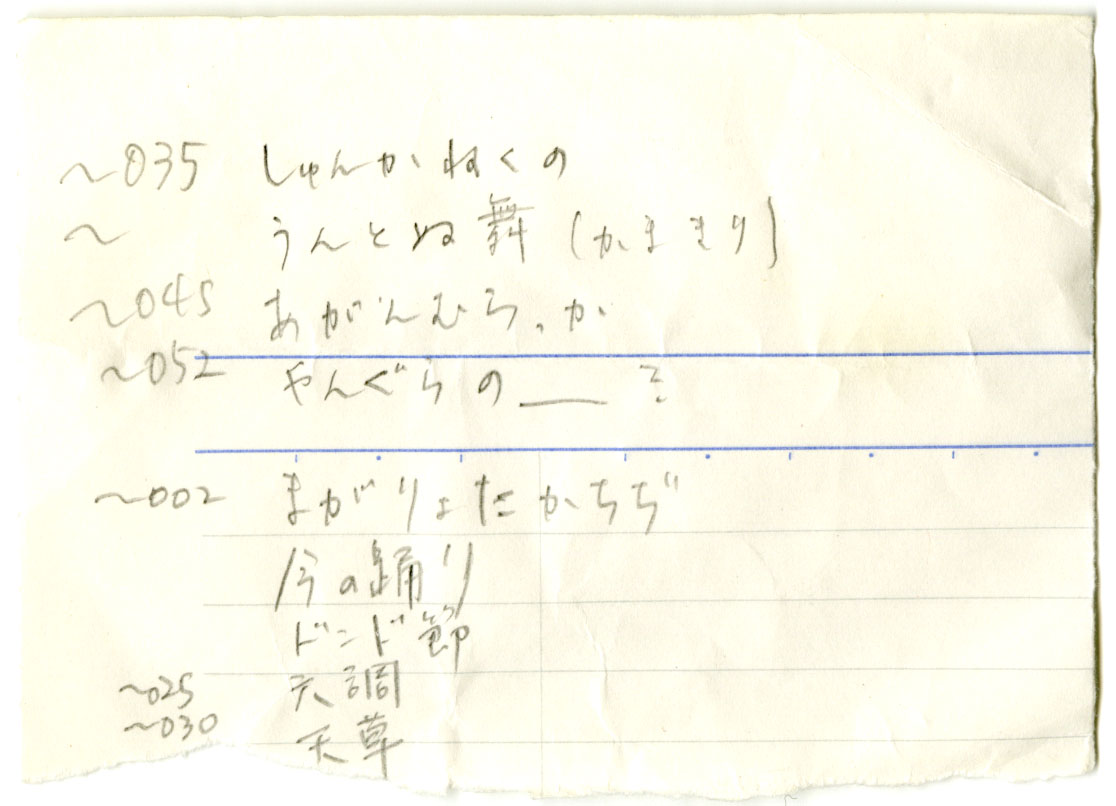 ~035 しゅんかねくの
~ うんとぬ舞(かまきり)
~045 あがんむら、か
~052 やんぐらの___そ
~002 まがりょたかちぢ
今の踊り
ドンド節
~025 六調
~030 天草